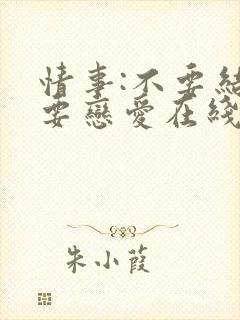 情事:不要結
要戀愛在綫
朱小葭